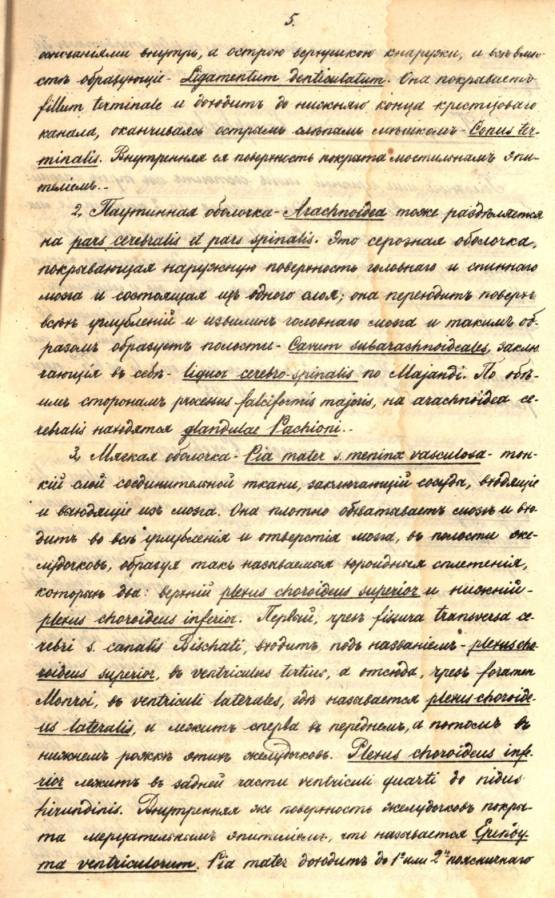 5.
основаніями внутрь, а острою верхушкою кнаружи, и всѣ вмѣ-
стѣ образующіе - Ligamentum denticulatum. Она покрываетъ
fillum terminale и доходитъ до нижняго конца крестцоваго
канала, оканчиваясь острымъ слѣпымъ мѣшкомъ - Conus ter-
minalis. Внутренняя ея поверхность покрыта мостильнымъ эпи-
теліемъ..
2, Паутинная оболочка - Arachnoidea тоже раздѣляется
на pars cerebralis et pars spinalis. Это серозная оболочка,
покрывающая наружную поверхность головнаго и спиннаго
мозга и состоящая изъ одного слоя; она переходитъ поверхъ
всѣхъ углубленій и извилинъ головнаго мозга и такимъ об-
разомъ образуетъ полости - Cavum subarachnoideales, заклю-
чающія въ себѣ - liquor cerebro-spinalis по Majandi. По обѣ-
имъ сторонамъ processus falciformis majoris, на arachnoidea ce-
rebralis находятся glandulae Pachioni..
3, Мягкая оболочка - Pia mater s. meninx vasculosa - тон-
кій слой соединительной ткани, заключающій сосуды, входящіе
и выходящіе изъ мозга. Она плотно обхватываетъ мозгъ и вхо-
дитъ во всѣ углубленія и отверстія мозга, въ полости же-
лудочковъ, образуя такъ называемыя хороидныя сплетенія,
которыхъ два: верхній plexus choroideus superior и нижній -
plexus choroideus inferior. Первый, чрезъ fissura transversa ce-
rebri s. canalis Bischati, входитъ подъ названіемъ - plexus cho-
roideus superior, въ ventriculus tertius, а отсюда, чрезъ foramen
Monroi, въ ventriculi laterales, гдѣ называется plexus choroide-
us lateralis, и лежитъ сперва въ переднемъ, а потомъ въ
нижнемъ рожкѣ этихъ желудочковъ. Plexus choroideus infe-
rior лежитъ въ задней части ventriculi quarti до nidus
hirundinis. Внутренняя же поверхность желудочковъ покры-
та мерцательнымъ эпителіемъ, что называется Ependy-
ma ventriculorum. Pia mater доходитъ до 1го или 2го поясничнаго